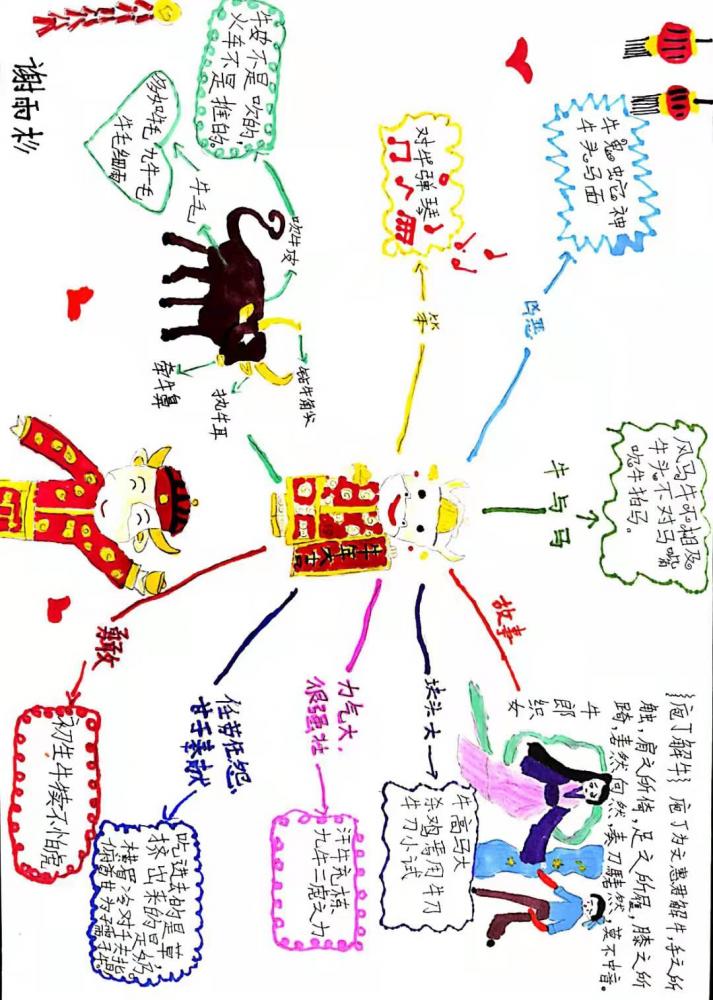 谢雨杉
牛皮不是吹的
火车不是推的。
多如牛毛 九牛一毛
牛毛细雨
牛毛
吹牛皮
钻牛角尖
执牛耳
牵牛鼻
对牛弹琴
笨
牛鬼蛇神
牛头马面
凶恶
风马牛不相及
牛头不对马嘴
吹牛拍马。
牛与马
牛年大吉
故事
牛郎织女
《庖丁解牛》庖丁为文惠君解牛,手之所
触,肩之所倚,足之所履,膝之所
踦,砉然向然,奏刀騞然,莫不中音。
块头大
牛高马大
杀鸡焉用牛刀
牛刀小试
力气大,
很强壮
汗牛充栋
九牛二虎之力
任劳任怨,
甘于奉献
吃进去的是草,
挤出来的是奶。
横眉冷对千夫指,
俯首甘为孺子牛。
勇敢
初生牛犊不怕虎